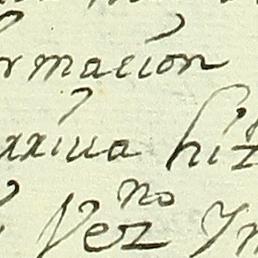 rmacion
xxiua hiz
Vez^no Yn